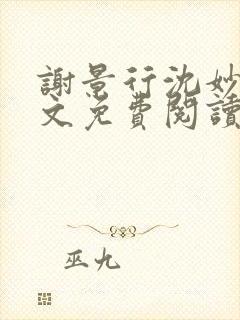 謝景行沈妙
文免費閱讀
巫九